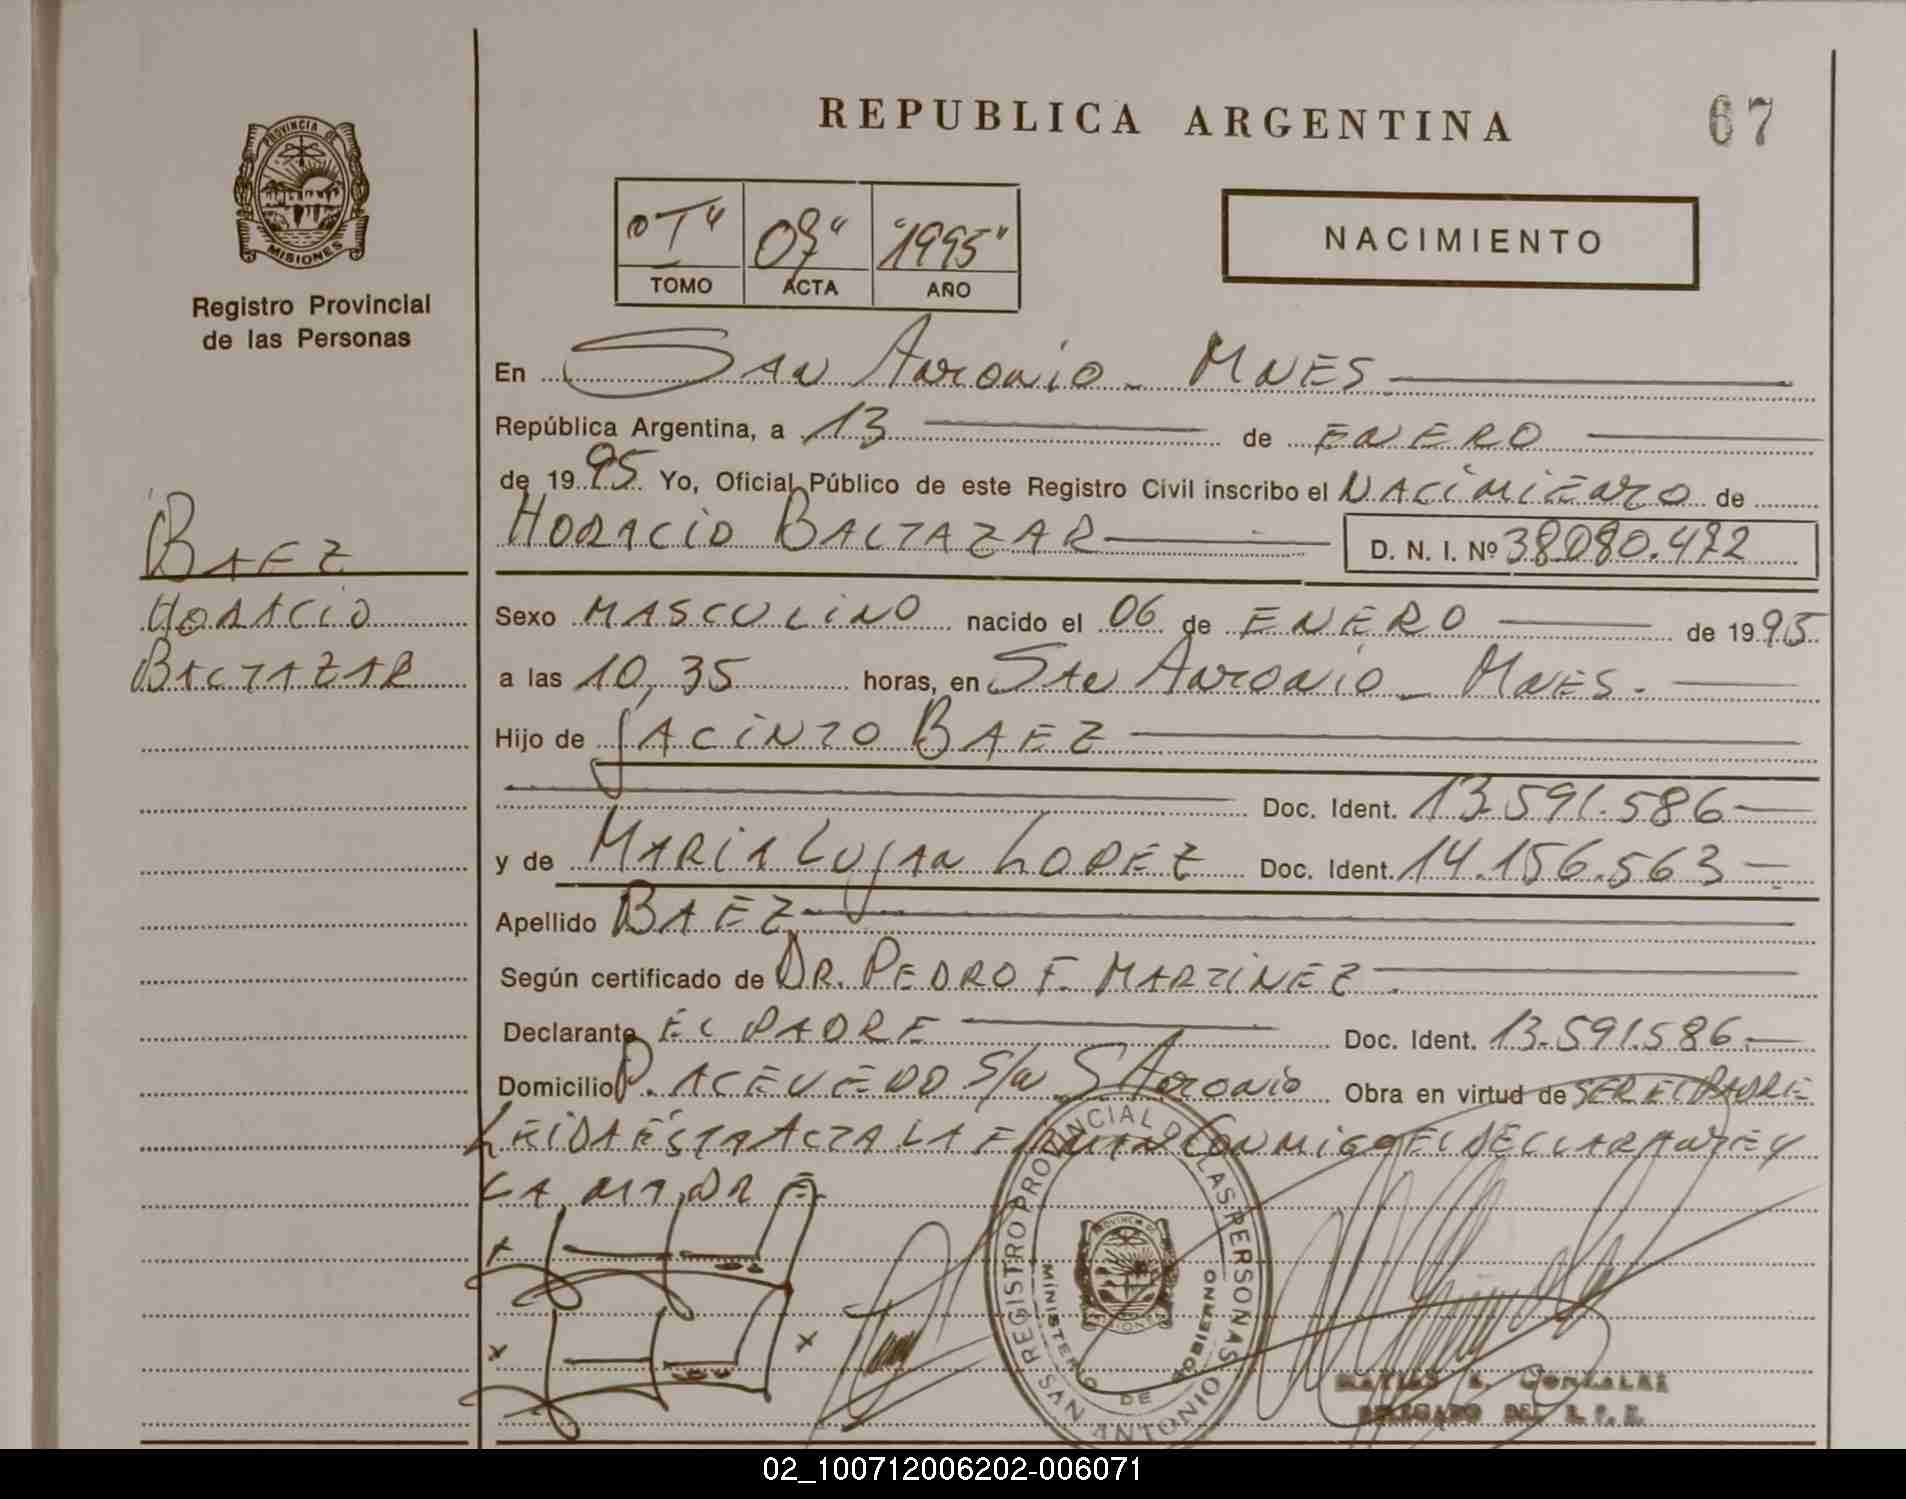 REPUBLICA ARGENTINA
67
PROVINCIA DE
MISIONES
Registro Provincial
de las Personas
"I" "1995"
TOMO ACTA AÑO
NACIMIENTO
En SAN ANTONIO - MNES
República Argentina, a 13 de ENERO
de 1995 Yo, Oficial Público de este Registro Civil inscribo el NACIMIENTO de
HORACIO BALTAZAR D. N. I. Nº 38.080.472
BAEZ
HORACIO
BALTAZAR
Sexo MASCULINO nacido el 06 de ENERO de 1995
a las 10,35 horas, en SAN ANTONIO - MNES.
Hijo de JACINTO BAEZ
Doc. Ident. 13.591.586
y de MARIA LUJAN LOPEZ Doc. Ident. 14.156.563
Apellido BAEZ
Según certificado de DR. PEDRO F. MARTINEZ
Declarante EL PADRE Doc. Ident. 13.591.586
Domicilio P. ACEVEDO S/N S. ANTONIO Obra en virtud de SER EL PADRE
LEIDA ESTA ACTA LA FIRMAN CONMIGO EL DECLARANTE Y
LA MADRE
REGISTRO PROVINCIAL DE LAS PERSONAS
MINISTERIO DE GOBIERNO
SAN ANTONIO
GONZALEZ
DELEGADO DEL R. P. P.
02_100712006202-006071